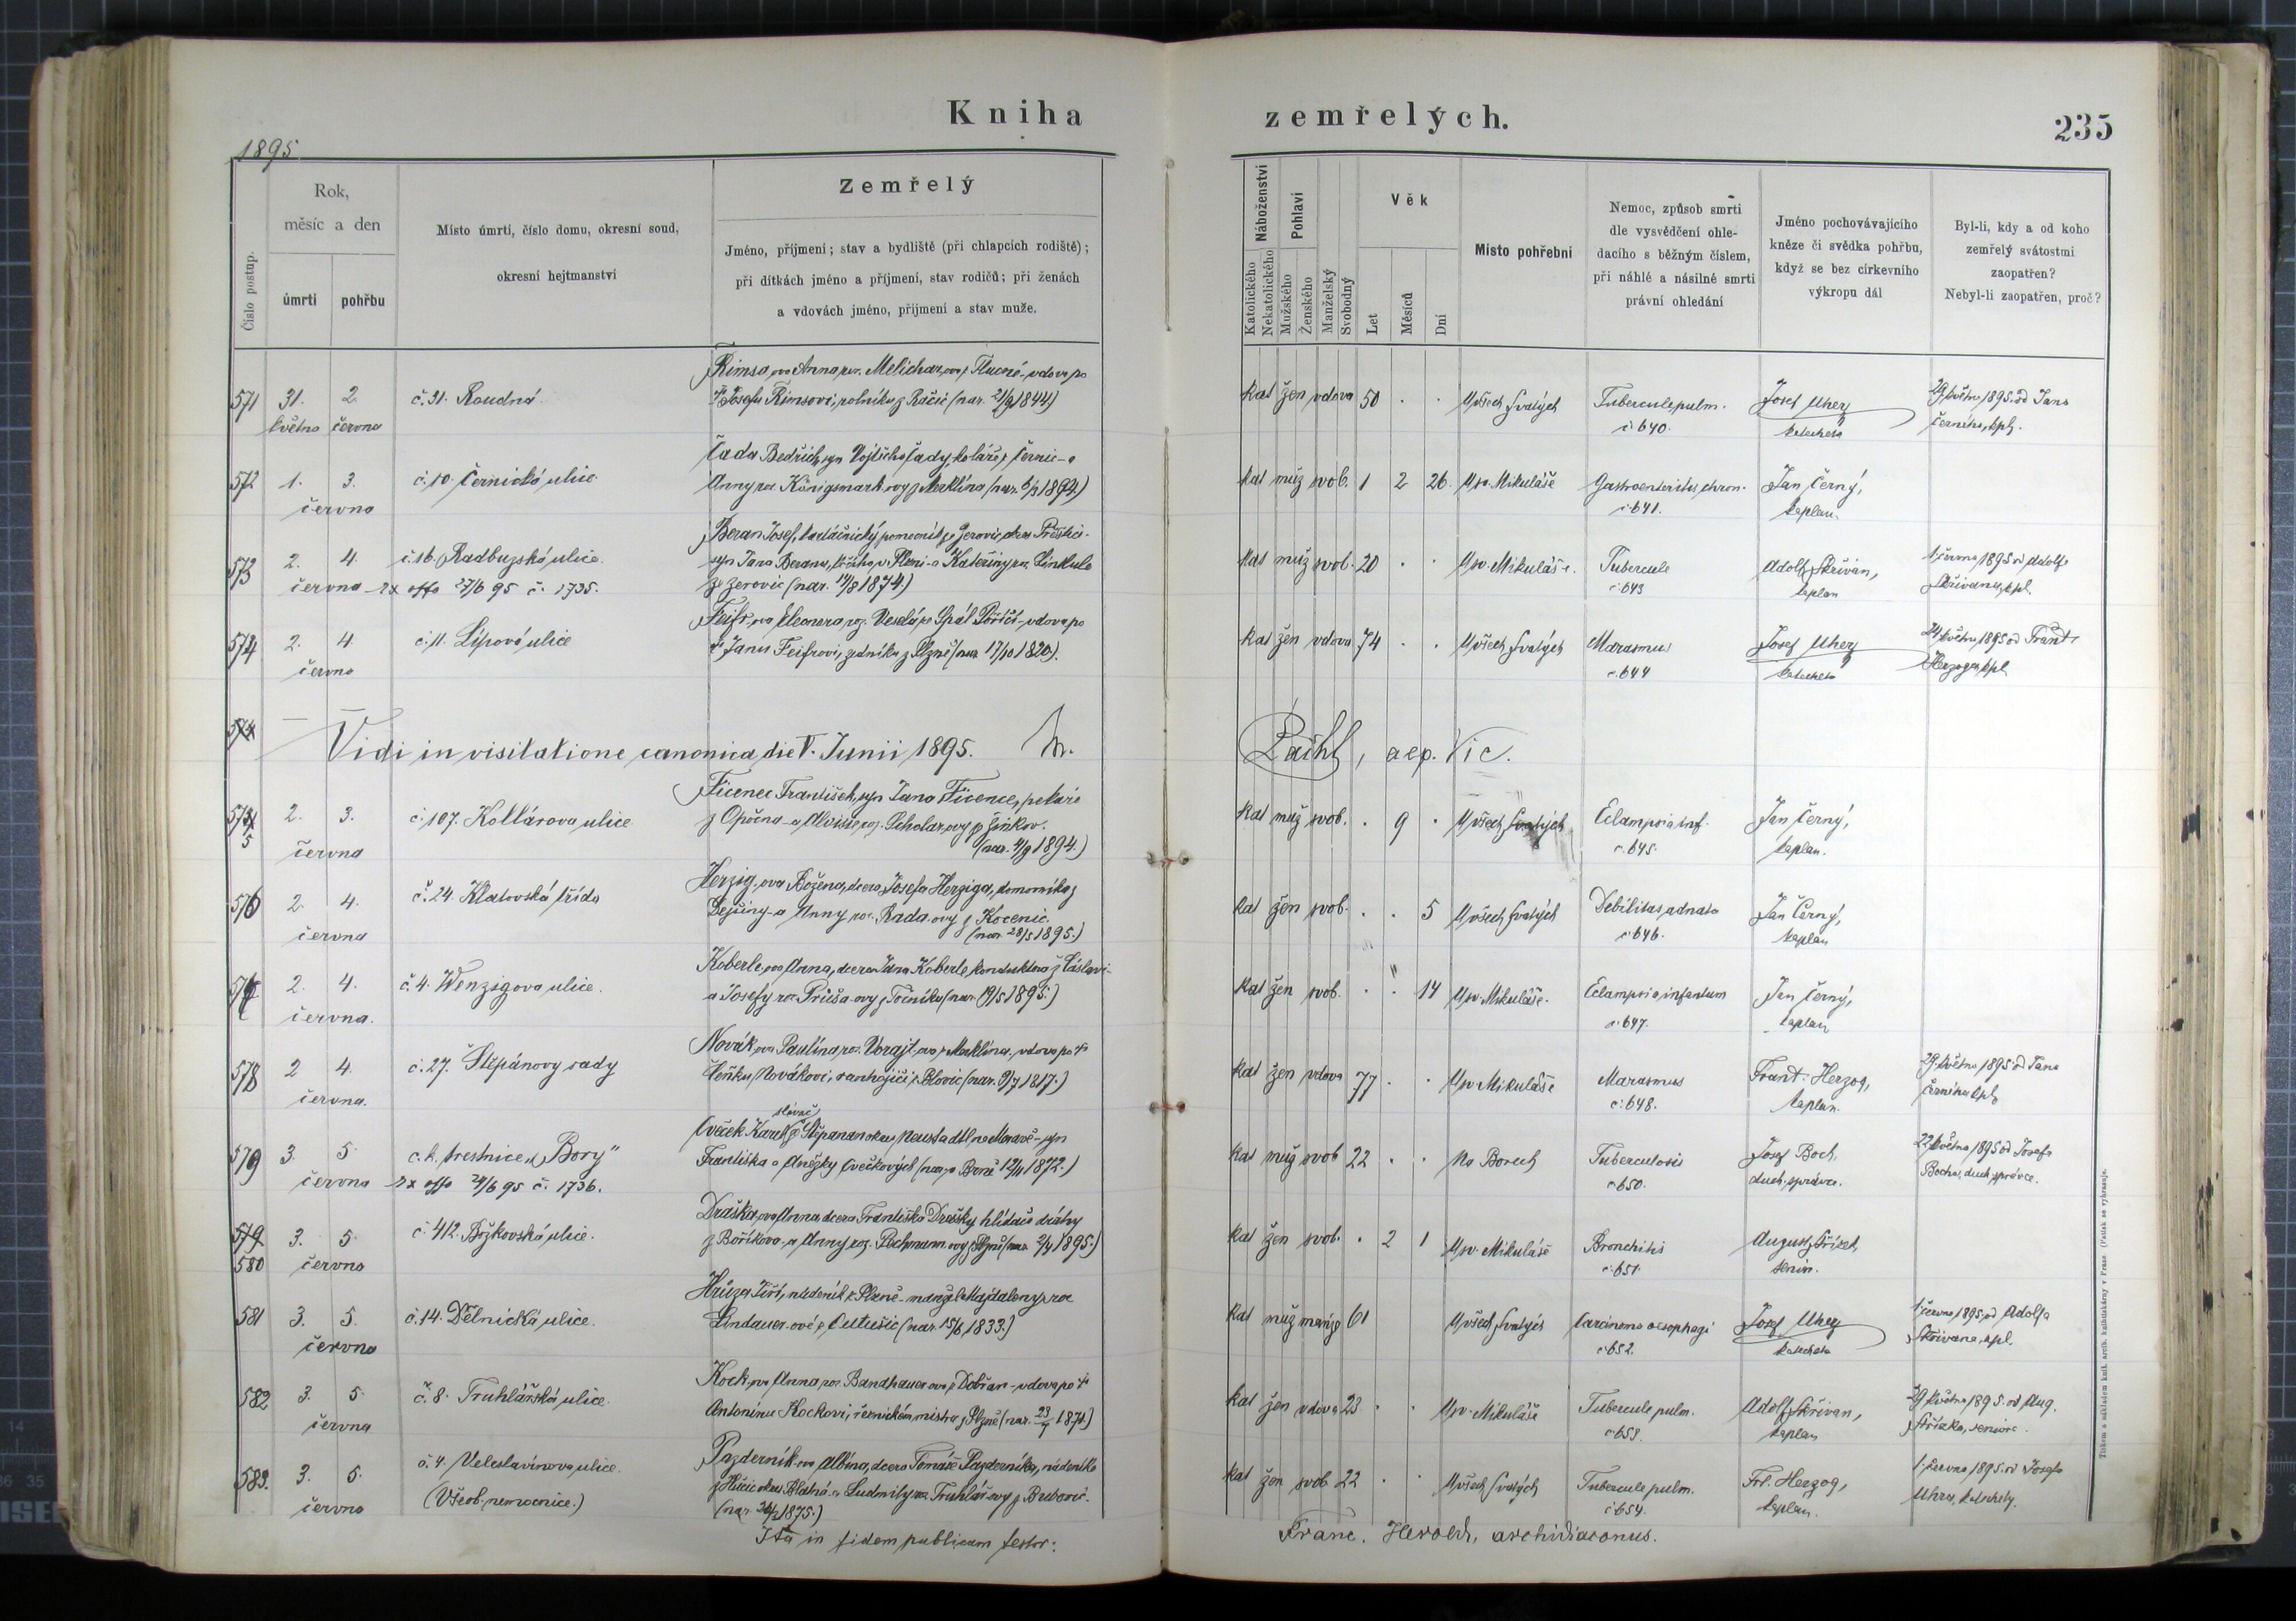 Kniha zemřelých.
235
1895
Číslo postup.
Rok,
měsíc a den
úmrtí pohřbu
Místo úmrtí, číslo domu, okresní soud,
okresní hejtmanství
Zemřelý
Jméno, příjmení; stav a bydliště (při chlapcích rodiště);
při dítkách jméno a příjmení, stav rodičů; při ženách
a vdovách jméno, přijmení a stav muže.
Náboženství
Katolického
Nekatolického
Pohlaví
Mužského
Ženského
Manželský
Svobodný
Věk
Let
Měsíců
Dní
Místo pohřební
Nemoc, způsob smrti
dle vysvědčení ohle-
dacího s běžným číslem,
při náhlé a násilné smrti
právní ohledání
Jméno pochovávajícího
kněze či svědka pohřbu,
když se bez církevního
výkropu dál
Byl-li, kdy a od koho
zemřelý svátostmi
zaopatřen?
Nebyl-li zaopatřen, proč?
571 31. května 2. června č. 31. Roudná
Rimsa, ova Anna, roz. Melichar, ova z Tlucné - vdova po
† Josefu Rimsovi, rolníku z Ráčic (nar. 1844)
kat žen vdova 50 . . U všech Svatých Tubercul. pulm. č. 640. Josef Uher, katecheta
29. května 1895. od Jana
Černého, kpl.
572 1. 3. června č. 10. Černická ulice
Čada Bedřich, syn Vojtěcha Čady, koláře z Černic - a
Anny roz. Königsmark-ovy z Merklína (nar. 6/3 1894.)
kat muž svob. 1 2 26. U sv. Mikuláše Gastroenteritis chron. č. 641. Jan Černý, kaplan.
573 2. 4. června č. 16. Radbuzská ulice.
ex offo 27/6 95 č. 1735.
Beran Josef, pomocník ze Žerovic, okres Přeštice -
syn Jana Berana, v Plzni - a Kateřiny roz. Linkule
ze Žerovic (nar. 1874)
kat muž svob. 20 . . U sv. Mikuláše. Tubercule č. 643 Adolf Skřivan, kaplan
1. června 1895 od Adolfa
Skřivana, kpl.
574 2. 4. června č. 11. Lípová ulice
Feifr, ova Eleonora, roz. Veselý, ze Spál. Poříčí - vdova po
† Janu Feifrovi, zedníku z Plzně (nar. 17/10 1820).
kat žen vdova 74 . . U všech Svatých Marasmus č. 644 Josef Uher, katecheta
24. května 1895 od Frant.
Herzoga, kpl.
Vidi in visitatione canonica die V. Junii 1895. Pachl, aep. Vic.
575 2. 3. června č. 107. Kollárova ulice
Ficenec František, syn Jana Ficence, pekaře
z Opočna - a Aloisie, roz. Scholar, ovy z Žinkov.
(nar. 4/9 1894.)
kat muž svob. . 9 . U všech Svatých Eclampsia inf. č. 645. Jan Černý, kaplan.
576 2. 4. června č. 24. Klatovská třída
Herzig, ova Božena, dcera Josefa Herziga, domovníka z
Dejšiny - a Anny roz. Rada, ovy z Kocenic.
(nar. 28/5 1895.)
kat žen svob. . . 5 U všech Svatých Debilitas adnata č. 646. Jan Černý, kaplan
577 2. 4. června. č. 4. Wenzigova ulice.
Koberle, ova Anna, dcera Jana Koberle, konduktora z Čáslavi -
a Josefy roz. Průša-ovy z Točníku (nar. 19/5 1895.)
kat žen svob. . . 14 U sv. Mikuláše. Eclampsia infantum č. 647. Jan Černý, kaplan
578 2 4. června. č. 27. Štěpánovy sady
Novák, ova Paulína, roz. Vorajt, ova z Merklína, vdova po †
Čeňku Novákovi, ranhojiči z Blovic (nar. 9/7 1817.)
kat žen vdova 77 . . U sv. Mikuláše Marasmus č. 648. Frant. Herzog, kaplan.
29. května 1895 od Jana
Černého, kpl.
579 3. 5. června c. k. trestnice „Bory"
ex offo 29/6 95 č. 1736.
Cvěček Karel, slévač z Štěpánan okres Neustadtl na Moravě - syn
Františka a Anežky Cvečkových (nar. v Brně 12/11 1872.)
kat muž svob 22 . . Na Borech Tuberculosis č. 650. Josef Boch, duch. správce.
22. května 1895 od Josefa
Bocha, duch. správce.
580 3. 5. června č. 412. Božkovská ulice.
Draška, ova Anna dcera Františka Drašky, hlídače dráhy
z Boříkova - a Anny roz. Pechmann, ovy z Plzně (nar. 2/4 1895.)
kat žen svob. . 2 1 U sv. Mikuláše Bronchitis č. 651. August Střízek, senior.
581 3. 5. června č. 14. Dělnická ulice.
Hrůza Jiří, nádeník z Plzně - manžel Majdaleny, roz.
Lindauer-ové z (nar. 15/6 1833.)
kat muž manž 61 U všech Svatých Carcinoma oesophagi č. 652. Josef Uher, katecheta
1. června 1895. od Adolfa
Skřivana, kpl.
582 3. 5. června č. 8. Truhlářská ulice.
Kock, ova Anna roz. Bandhauer ova z Dobřan - vdova po †
Antonínu Kockovi, řeznickém mistru z Plzně (nar. 1871.)
kat žen vdova 23 . . U sv. Mikuláše Tubercule pulm. č. 653. Adolf Skřivan, kaplan
29. května 1895. od Aug.
Střízka, seniora.
583. 3. 5. června č. 4. Veleslavínova ulice.
(Všeob. nemocnice.)
Pazderník, ova Albína, dcera Tomáše Pazderníka, nádeníka
z okres Blatná a Ludmily roz. Truhlář-ovy z
(nar. 1875.)
kat žen svob 22 . . U všech Svatých Tubercule pulm. č. 654. Fr. Herzog, kaplan.
1. června 1895. od Josefa
Uhra, katechety.
Ita in fidem publicam testor: Franc. Herold, archidiaconus.